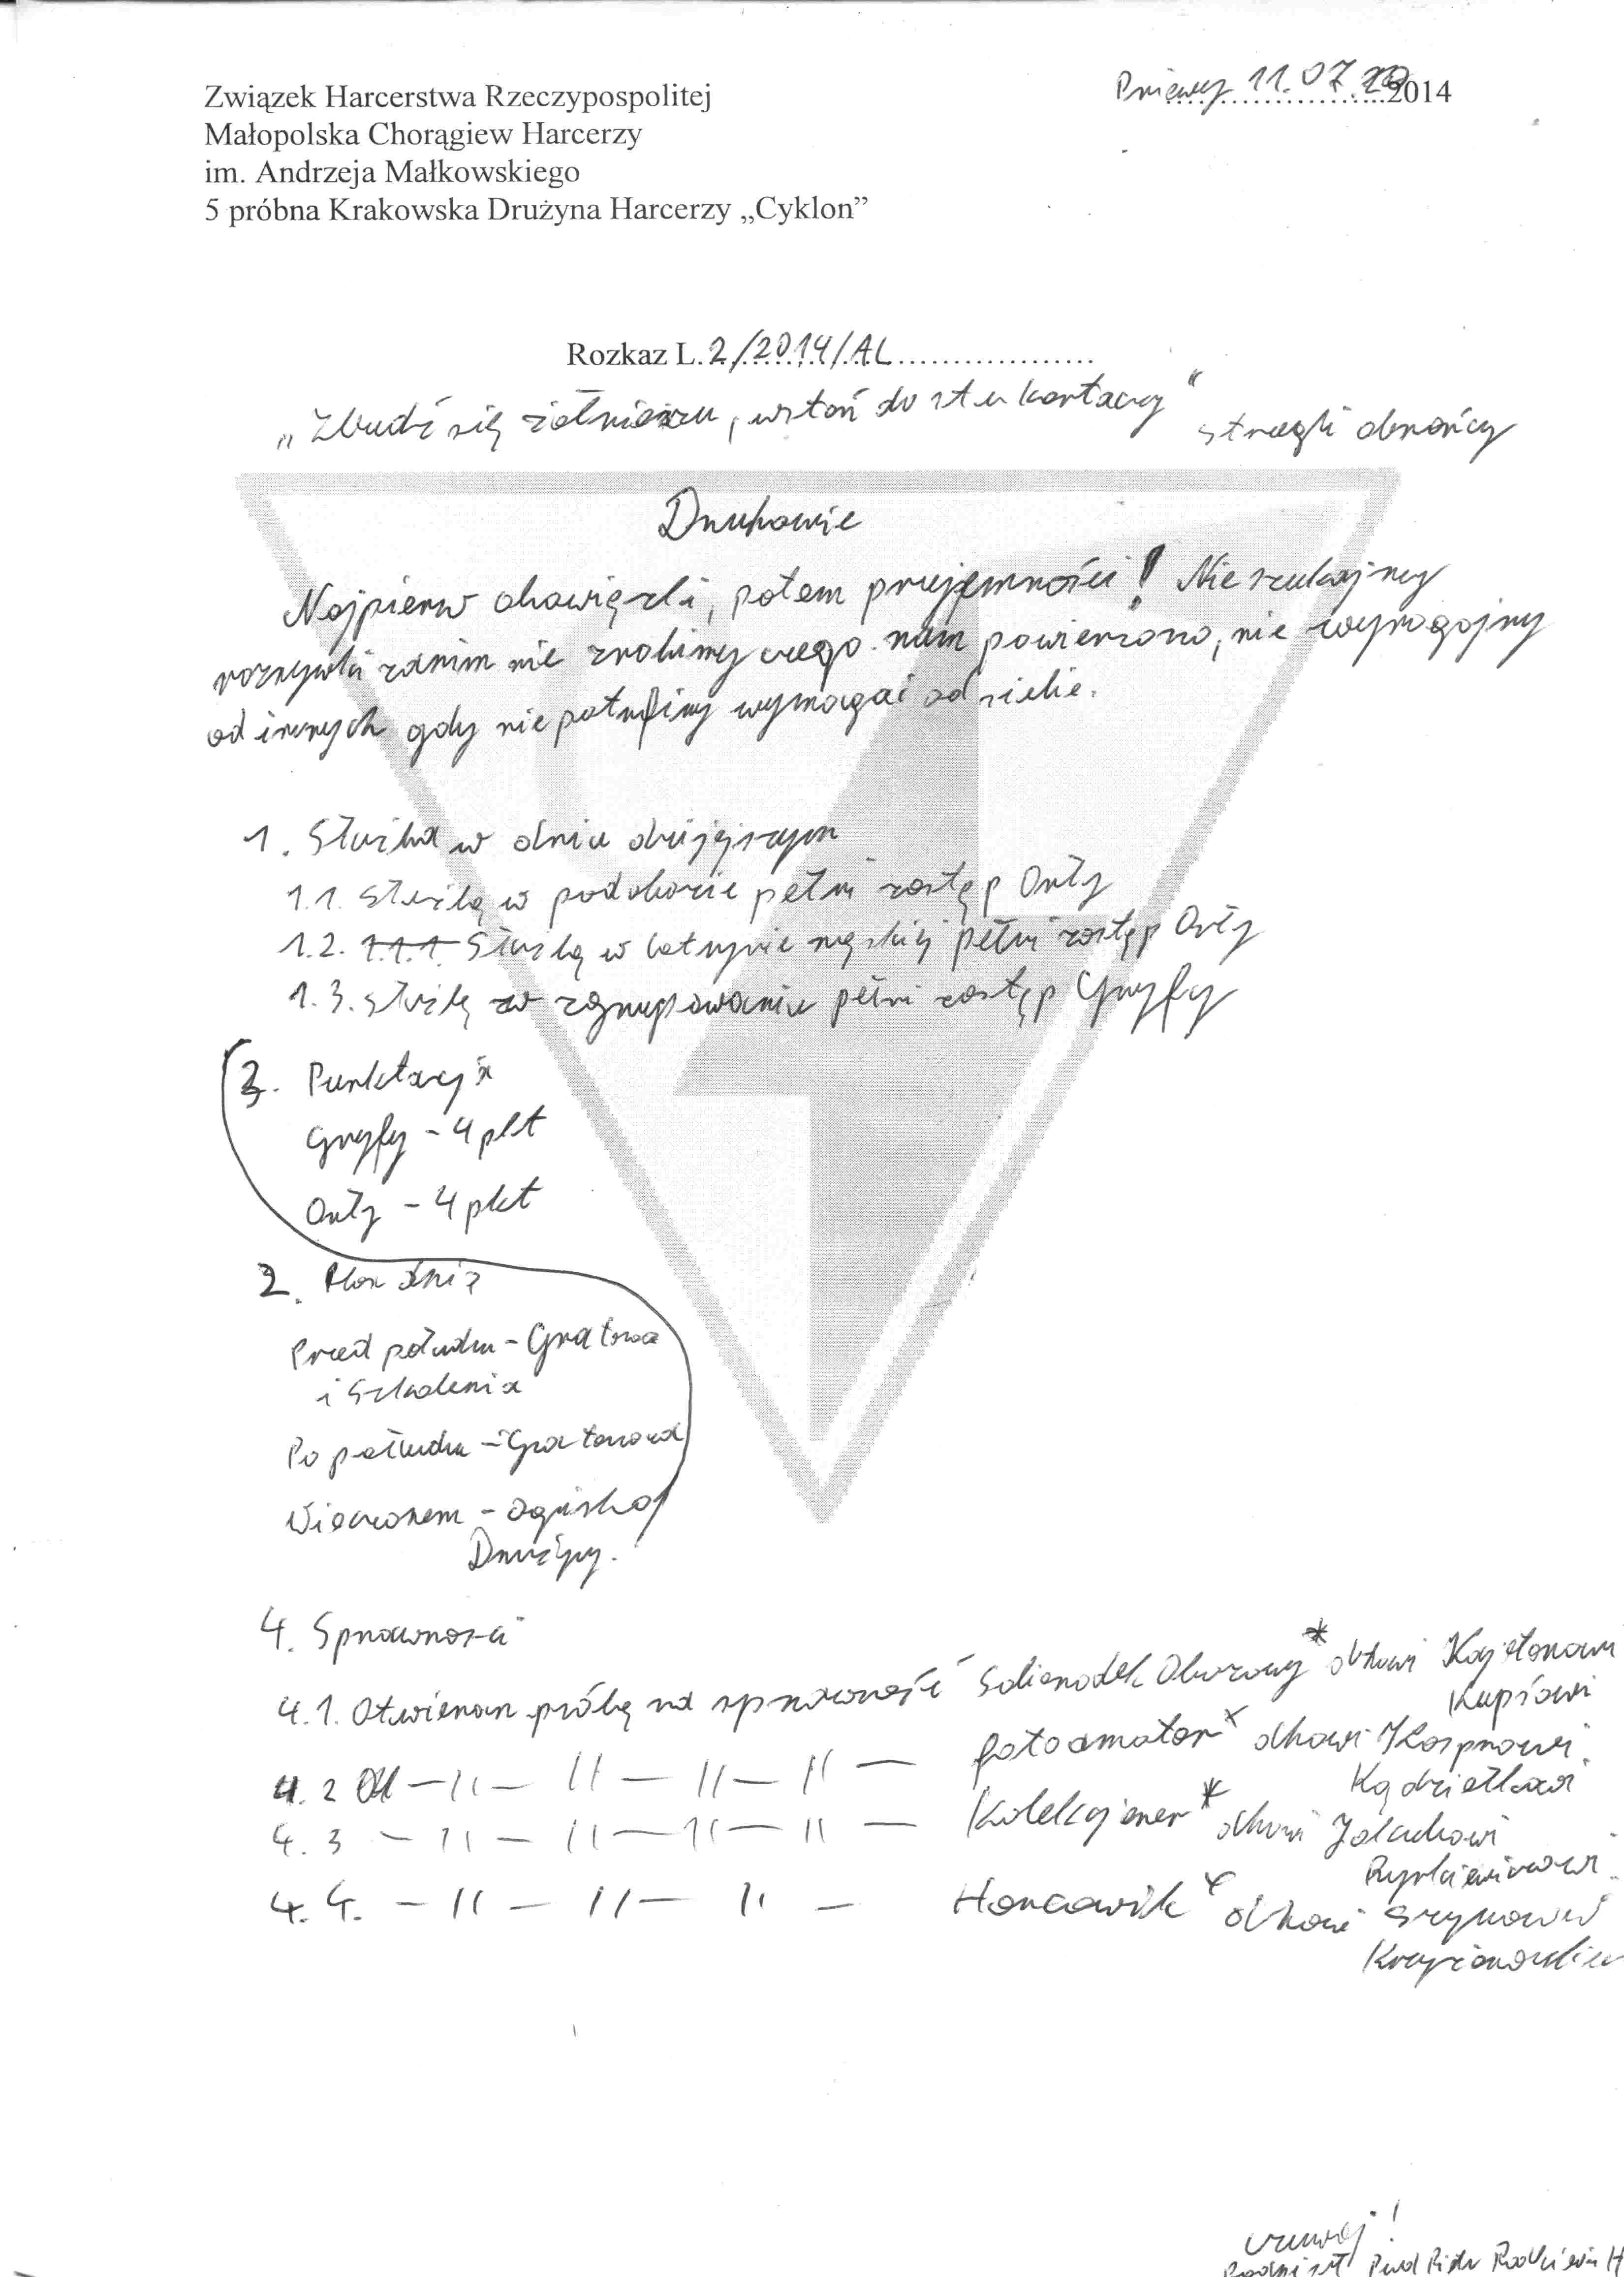 Związek Harcerstwa Rzeczypospolitej
Małopolska Chorągiew Harcerzy
im. Andrzeja Małkowskiego
5 próbna Krakowska Drużyna Harcerzy „Cyklon”
Pniewy 11.07 2014
Rozkaz L. 2/2014/AL
„Zbudź się żołnierzu, wstań do stu kartaczy”
obrońcy
Druhowie
Najpierw obowiązki, potem przyjemności! Nie szukajmy
rozrywki zanim nie zrobimy czego nam powierzono, nie wymagajmy
od innych gdy nie potrafimy wymagać od siebie.
1. Służba w dniu dzisiejszym
1.1. Służbę w podobozie pełni zastęp Orły
1.2. 1.1.1 Służbę w latrynie męskiej pełni zastęp Orły
1.3. Służbę w zgrupowaniu pełni zastęp Gryfy
3. Punktacja
Gryfy - 4 pkt
Orły - 4 pkt
2. Plan dnia
Przed południu - Gra
i Szkolenia
Po południu - Gra terenowa
Wieczorem - Ognisko
Drużyny.
4. Sprawności
4.1. Otwieram próbę na sprawność Obozowy* dhowi Kajetanowi
Kupsowi
4.2 — // — // — // — // — fotoamator* dhowi Kacprowi
Kądziełkowi
4.3 — // — // — // — // — Kolekcjoner* dhowi
4.4. — // — // — // — Harcownik* dhowi Szymonowi
Czuwaj!
Piotr